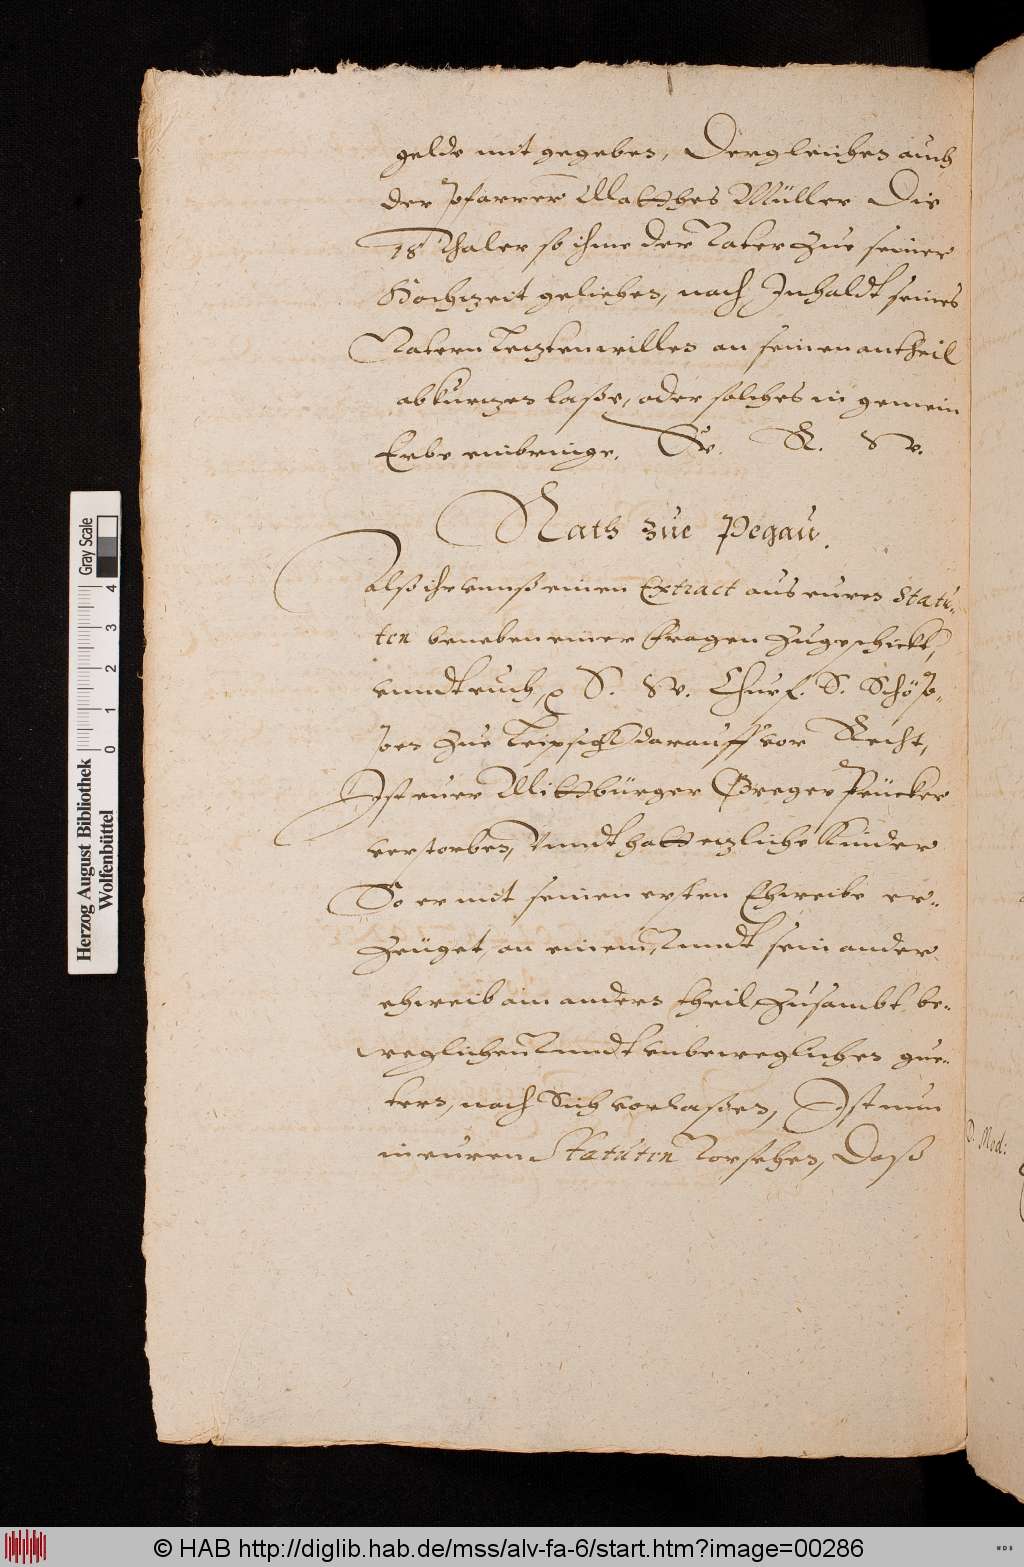 gelde mit gegeben, Dergleichen auch
der pfarrer Matthes Müller Die
18 Thaler so ihme der Vater zue seiner
Hochzeit geliehen, nach Inhaldt seines
Vatern Letztenwillen an seinen antheil
abkurtzen laße, oder solches in gemein
Erbe einbringe. V. R. W.
Rath zue Pegau.
Alß ihr unnß einen Extract aus euren Statu-
ten beneben einer fragen zugeschickt,
unndt euch S. W. Churf. S. Schöp-
pen zue Leipsigk darauff vor Recht,
Ist euer Mittbürger Greger Prücker
verstorben, Unndt hatt etzliche Kinder
So er mit seinen ersten Eheweibe er-
zeüget, an einem, Unndt sein ander
eheweib am andern theil, zusambt be-
weglichen Unndt unbeweglichen gue-
tern, nach Sich vorlaßen, Ist nun
in euren Statuten Vorsehen, Daß
D. Mod:
Gray Scale
0 1 2 3 4
Herzog August Bibliothek
Wolfenbüttel
© HAB http://diglib.hab.de/mss/alv-fa-6/start.htm?image=00286